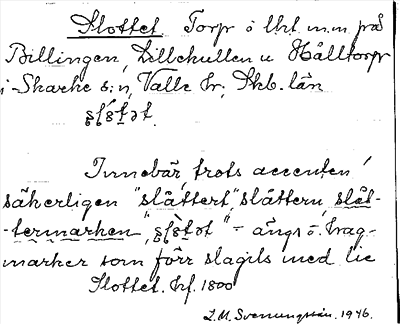 Slottet Torp ö. lht m.m på
Billingen, Lillekullen u Hålltorp
i Skarke s:n, Valle hr, Skb. län
Innebär, trots accenten,
säkerligen "slåttert", slåttern, slåt-
-termarken, " - ängs o. hag-
marker som förr slagits med lie
Slottet. hf. 1800
L.M. Svennungsson. 1946.